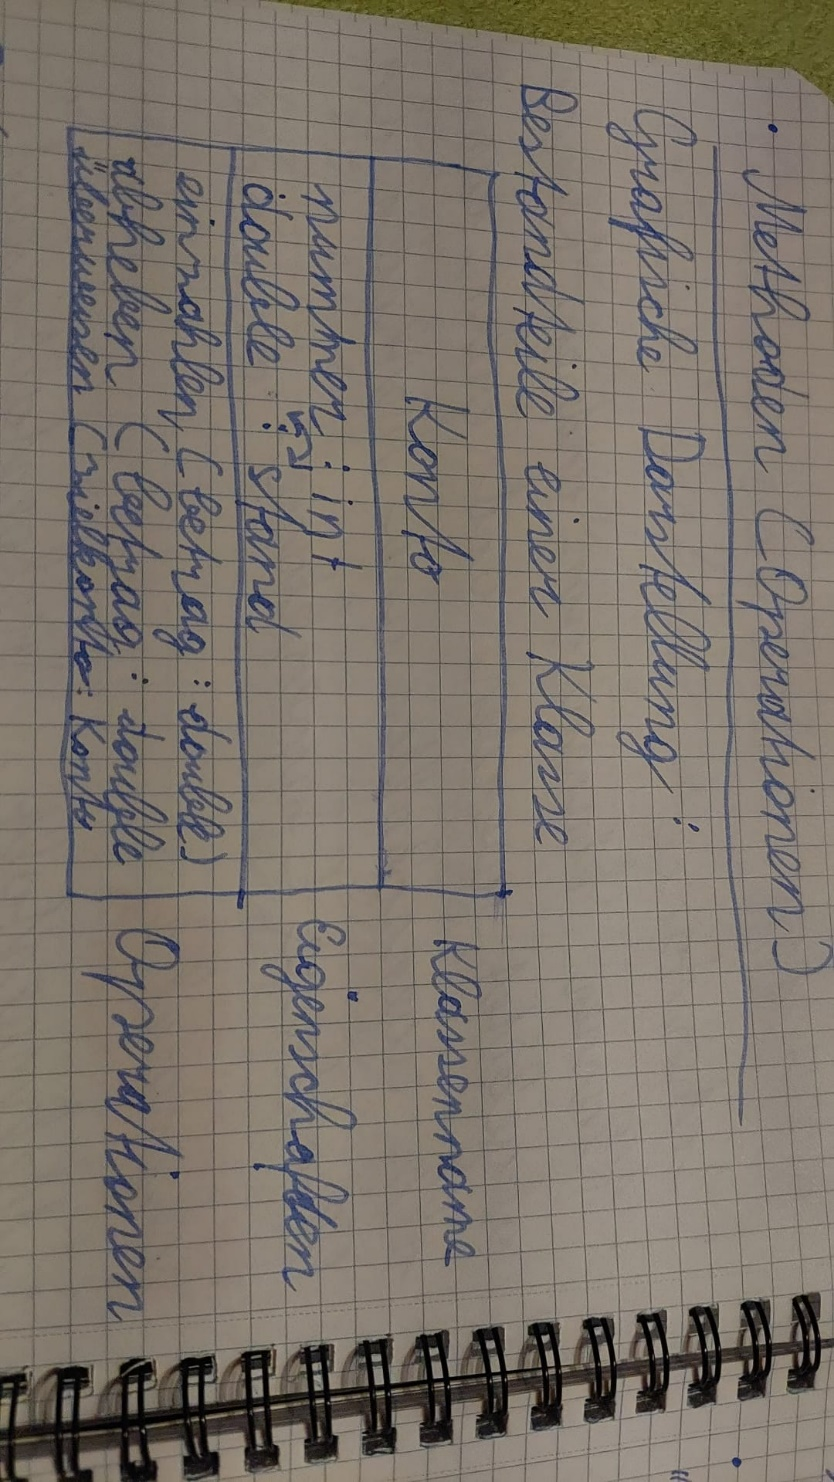 • Methoden (Operationen)
Grafische Darstellung:
Bestandteile einer Klasse
Konto Klassenname
nummer : int
double : stand Eigenschaften
einzahlen (betrag : double)
abheben (betrag : double Operationen
überweisen (zielkonto: Konto